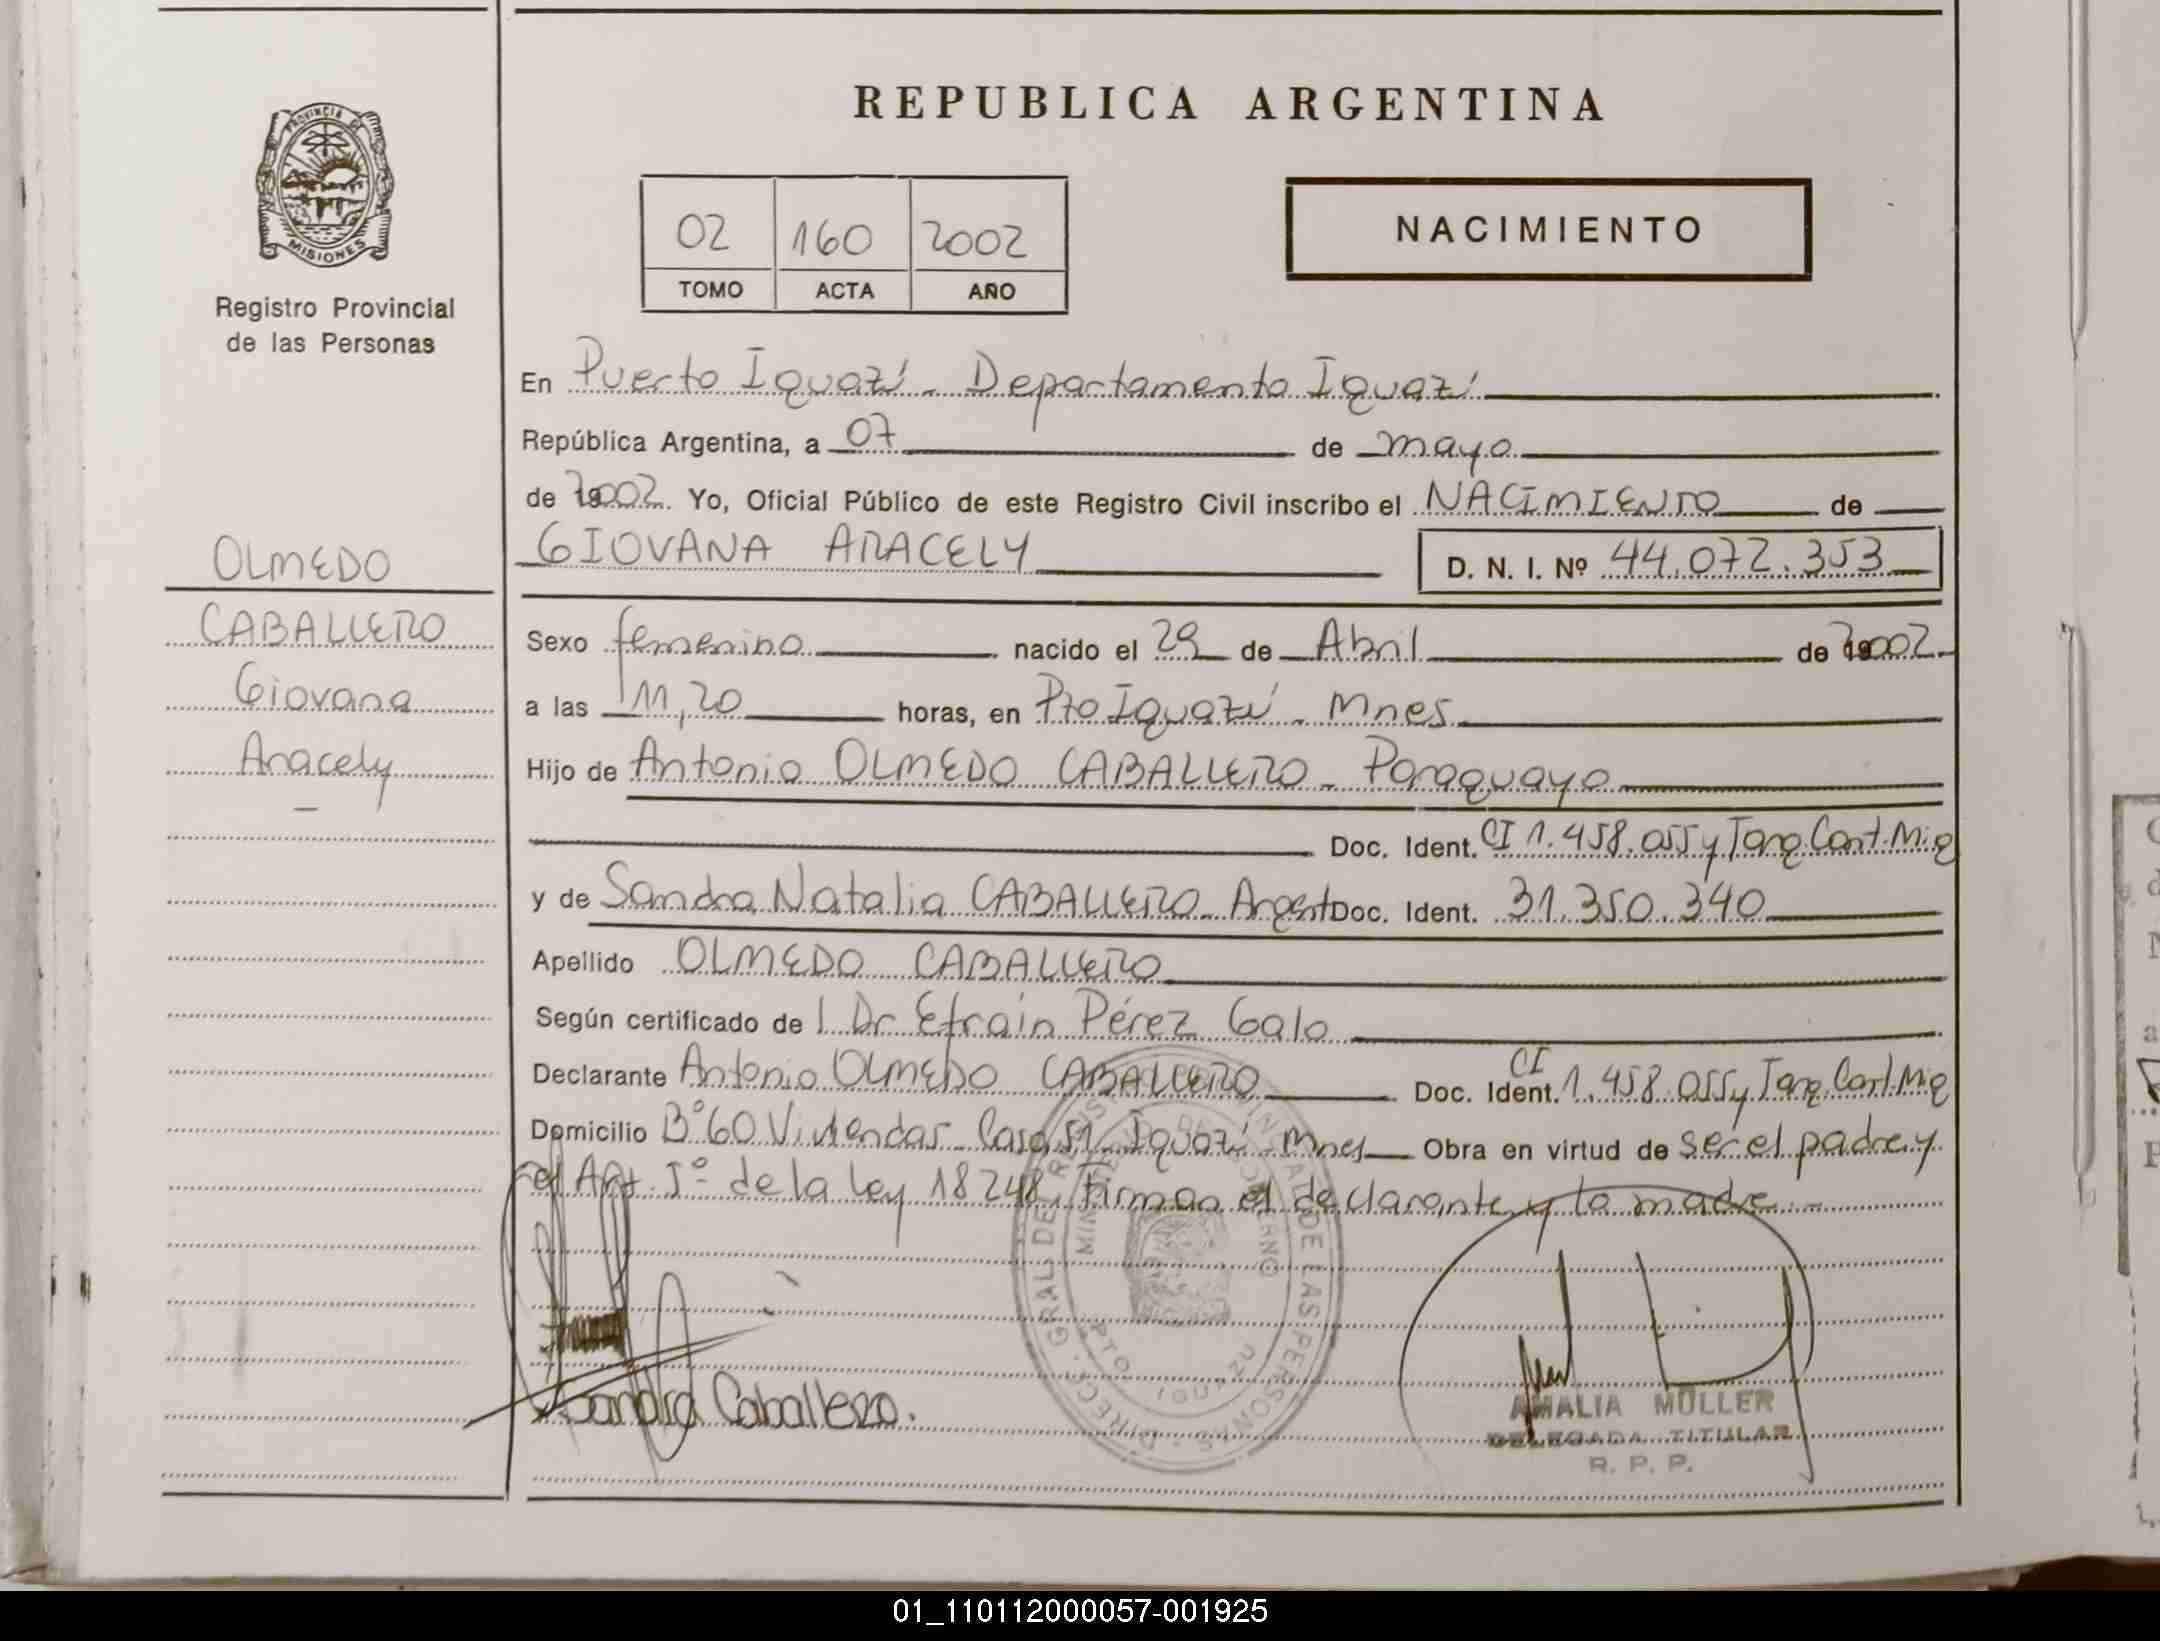 REPUBLICA ARGENTINA
PROVINCIA DE
MISIONES
Registro Provincial
de las Personas
02 160 2002
TOMO ACTA AÑO
NACIMIENTO
En Puerto Iguazú - Departamento Iguazú
República Argentina, a 07 de mayo
de 2002. Yo, Oficial Público de este Registro Civil inscribo el NACIMIENTO de
GIOVANA ARACELY D. N. I. Nº 44.072.353
OLMEDO
CABALLERO
Giovana
Aracely
Sexo femenino nacido el 29 de Abril de 2002
a las 11,20 horas, en Pto Iguazú - Mnes
Hijo de Antonio OLMEDO CABALLERO - Paraguayo
Doc. Ident. CI 1.458.055 y Tarq. Cart. Mig
y de Sandra Natalia CABALLERO - Argent Doc. Ident. 31.350.340
Apellido OLMEDO CABALLERO
Según certificado de l Dr Efraín Pérez Galo
Declarante Antonio OLMEDO CABALLERO Doc. Ident. CI 1.458.055 y Tarq. Cart. Mig
Domicilio Bº 60 Viviendas - Casa 51 - Iguazú - Mnes Obra en virtud de ser el padre y
el Art. 5º de la ley 18248, Firman el declarante y la madre. -
DIRECC. GRAL. DEL REG. PROVINCIAL DE LAS PERSONAS
MINISTERIO DE GOBIERNO
PTO IGUAZU
Sandra Caballero.
AMALIA MÜLLER
DELEGADA TITULAR
R. P. P.
01_110112000057-001925